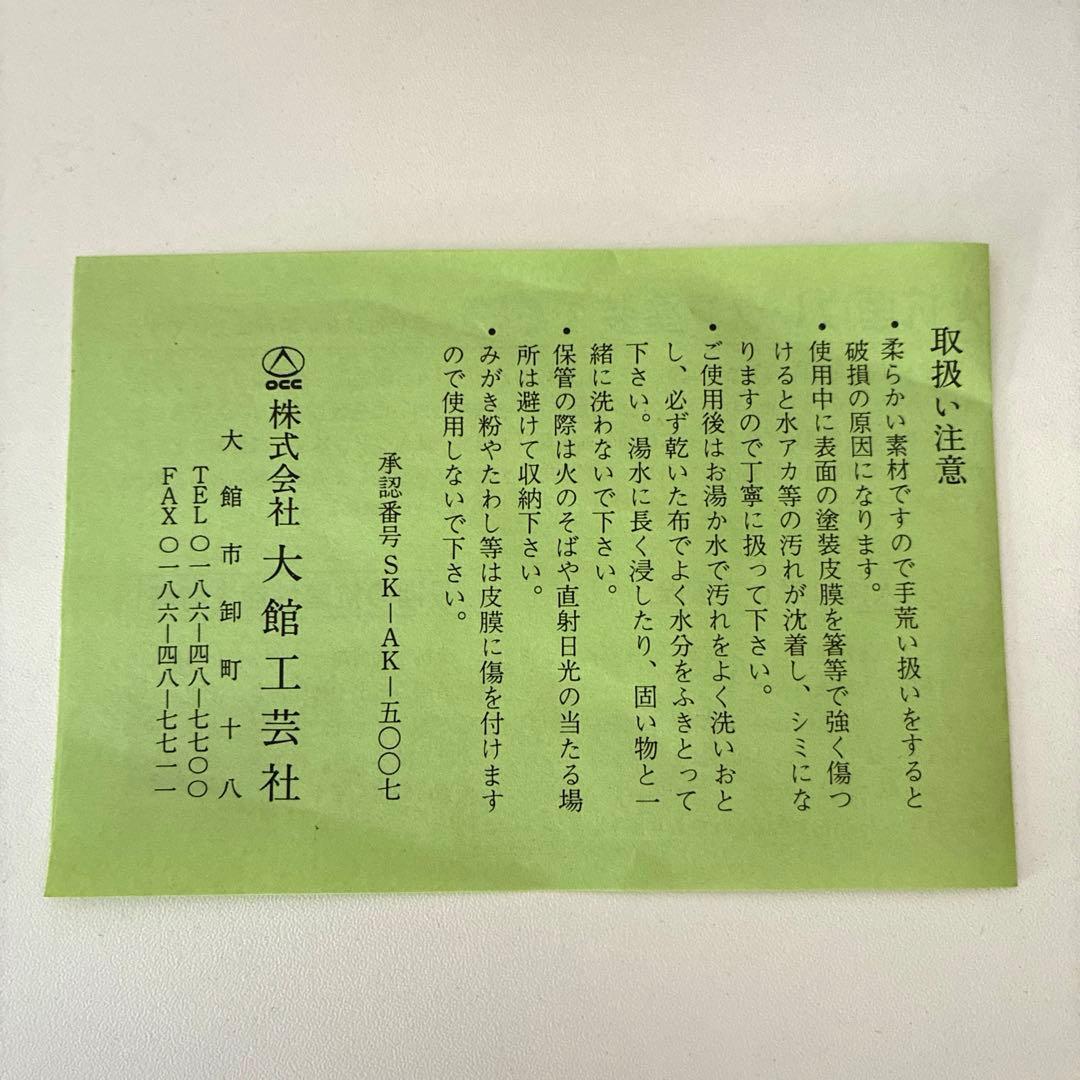 取扱い注意
・柔らかい素材ですので手荒い扱いをすると
破損の原因になります。
・使用中に表面の塗装皮膜を箸等で強く傷つ
けると水アカ等の汚れが沈着し、シミにな
りますので丁寧に扱って下さい。
・ご使用後はお湯か水で汚れをよく洗いおと
し、必ず乾いた布でよく水分をふきとって
下さい。湯水に長く浸したり、固い物と一
緒に洗わないで下さい。
・保管の際は火のそばや直射日光の当たる場
所は避けて収納下さい。
・みがき粉やたわし等は皮膜に傷を付けます
ので使用しないで下さい。
承認番号SK—AK—五〇〇七
OCC 株式会社 大館工芸社
大館市卸町十八
TEL〇一八六—四八—七七〇〇
FAX〇一八六—四八—七七一一